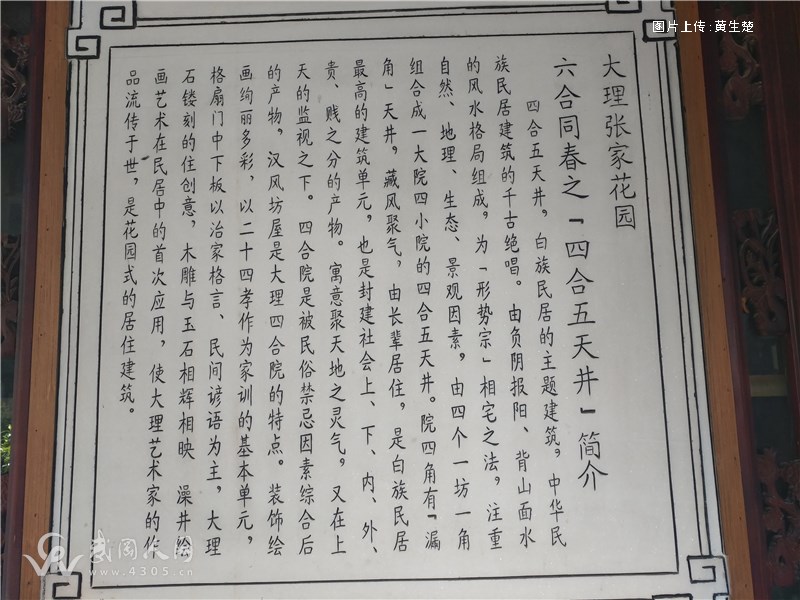 图片上传:黄生楚
大理张家花园
六合同春之「四合五天井」简介
四合五天井，白族民居的主题建筑，中华民
族民居建筑的千古绝唱。由负阴报阳、背山面水
的风水格局组成，为「形势宗」相宅之法，注重
自然、地理、生态、景观因素，由四个一坊一角
组合成一大院四小院的四合五天井。院四角有「漏
角」天井，藏风聚气，由长辈居住，是白族民居
最高的建筑单元，也是封建社会上、下、内、外、
贵、贱之分的产物。寓意聚天地之灵气，又在上
天的监视之下。四合院是被民俗禁忌因素综合后
的产物，汉风坊屋是大理四合院的特点。装饰绘
画绚丽多彩，以二十四孝作为家训的基本单元，
格扇门中下板以治家格言、民间谚语为主，大理
石镂刻的住创意，木雕与玉石相辉相映 澡井绘
画艺术在民居中的首次应用，使大理艺术家的作
品流传于世，是花园式的居住建筑。
www.4305.cn